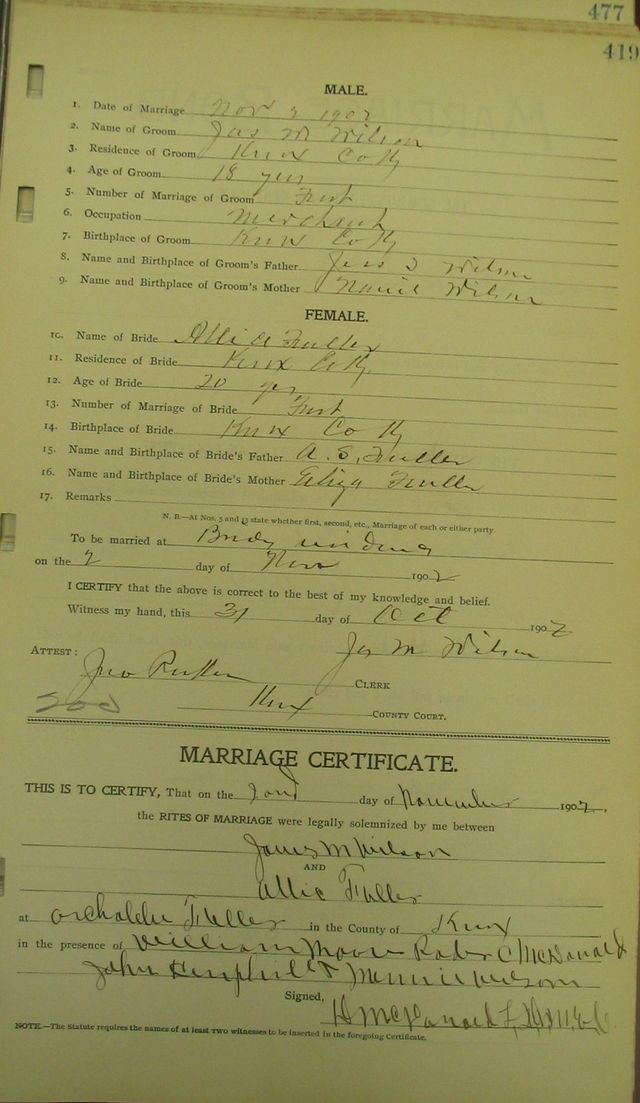 477
419
MALE.
1. Date of Marriage Nov 2 1902
2. Name of Groom Jas M Wilson
3. Residence of Groom Knox Co Ky
4. Age of Groom 18 yrs
5. Number of Marriage of Groom First
6. Occupation Merchant
7. Birthplace of Groom Knox Co Ky
8. Name and Birthplace of Groom's Father Wilson
9. Name and Birthplace of Groom's Mother Wilson
FEMALE.
10. Name of Bride Allie Fuller
11. Residence of Bride Knox Co Ky
12. Age of Bride 20 yrs
13. Number of Marriage of Bride First
14. Birthplace of Bride Knox Co Ky
15. Name and Birthplace of Bride's Father A. S. Fuller
16. Name and Birthplace of Bride's Mother Fuller
17. Remarks
N. B.—At Nos. 5 and 13 state whether first, second, etc., Marriage of each or either party.
To be married at
on the 2 day of Nov 1902
I CERTIFY that the above is correct to the best of my knowledge and belief.
Witness my hand, this 31 day of Oct 1902
Jas M Wilson
ATTEST:
Jno CLERK
Knox COUNTY COURT.
MARRIAGE CERTIFICATE.
THIS IS TO CERTIFY, That on the 2ond day of November 1902,
the RITES OF MARRIAGE were legally solemnized by me between
James M Wilson
AND
Allie Fuller
at Fuller in the County of Knox
in the presence of William Moore C McDonald
John Hemphill & Minnie Wilson
Signed,
NOTE.—The Statute requires the names of at least two witnesses to be inserted in the foregoing Certificate.